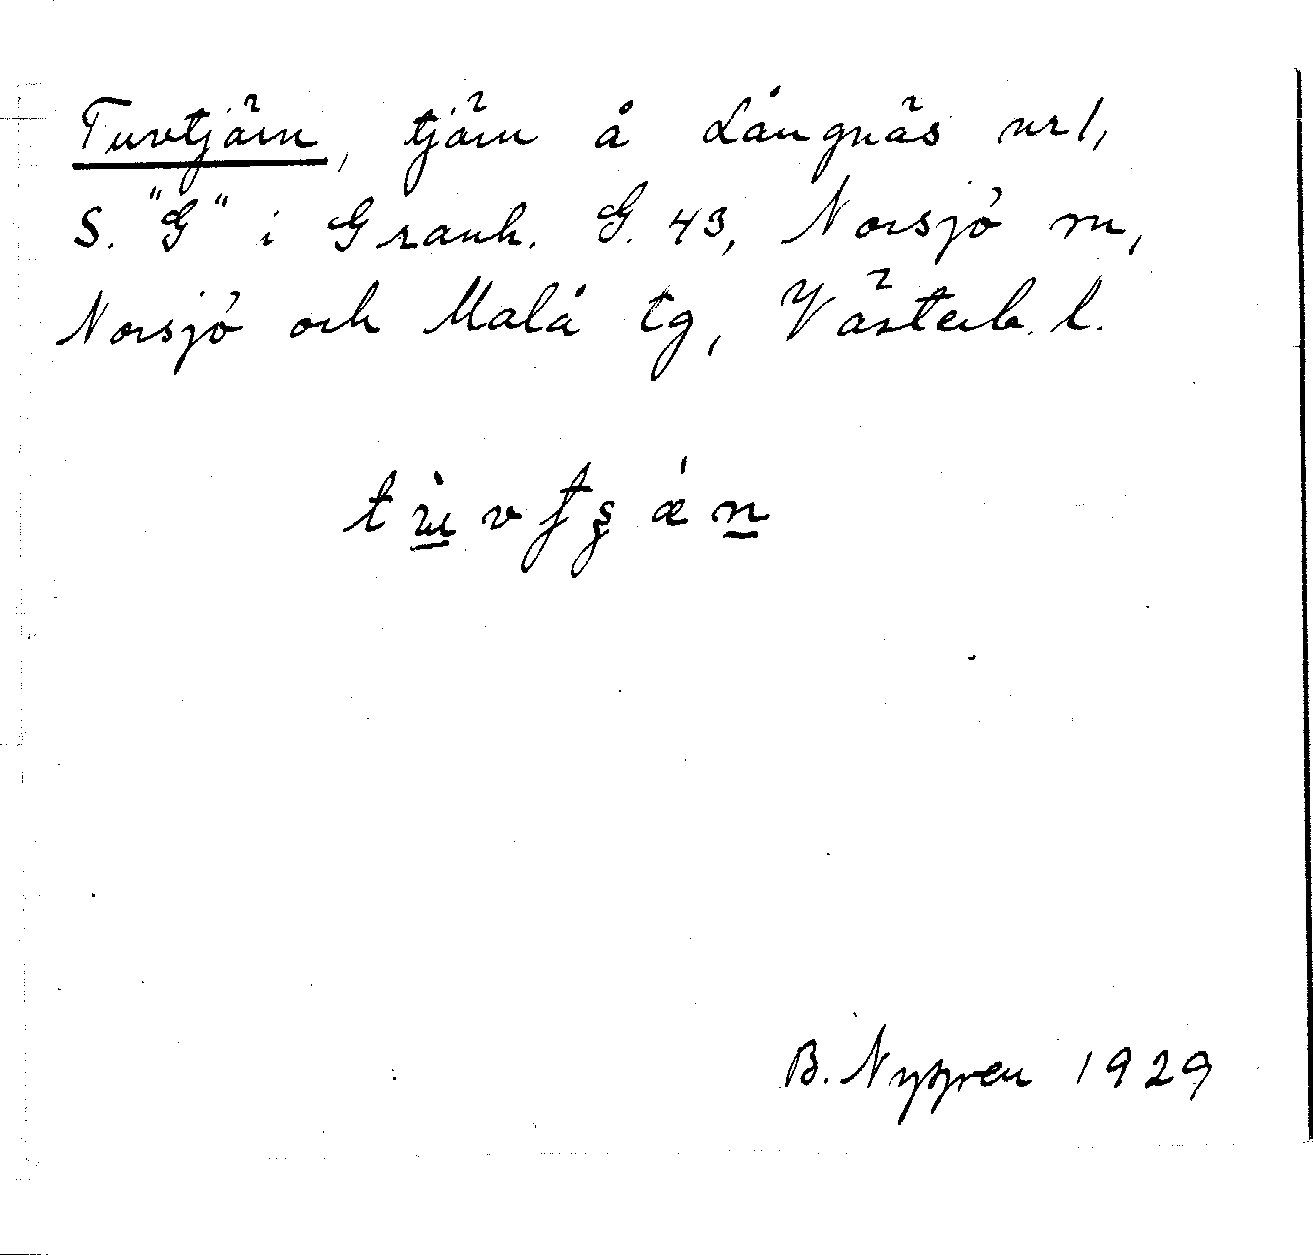 Tuvtjärn, tjärn å Långnäs nr 1,
S. "G" i Granh. G. 43, Norsjö sn,
Norsjö och Malå tg, Västerb. l.
B. Nygren 1929